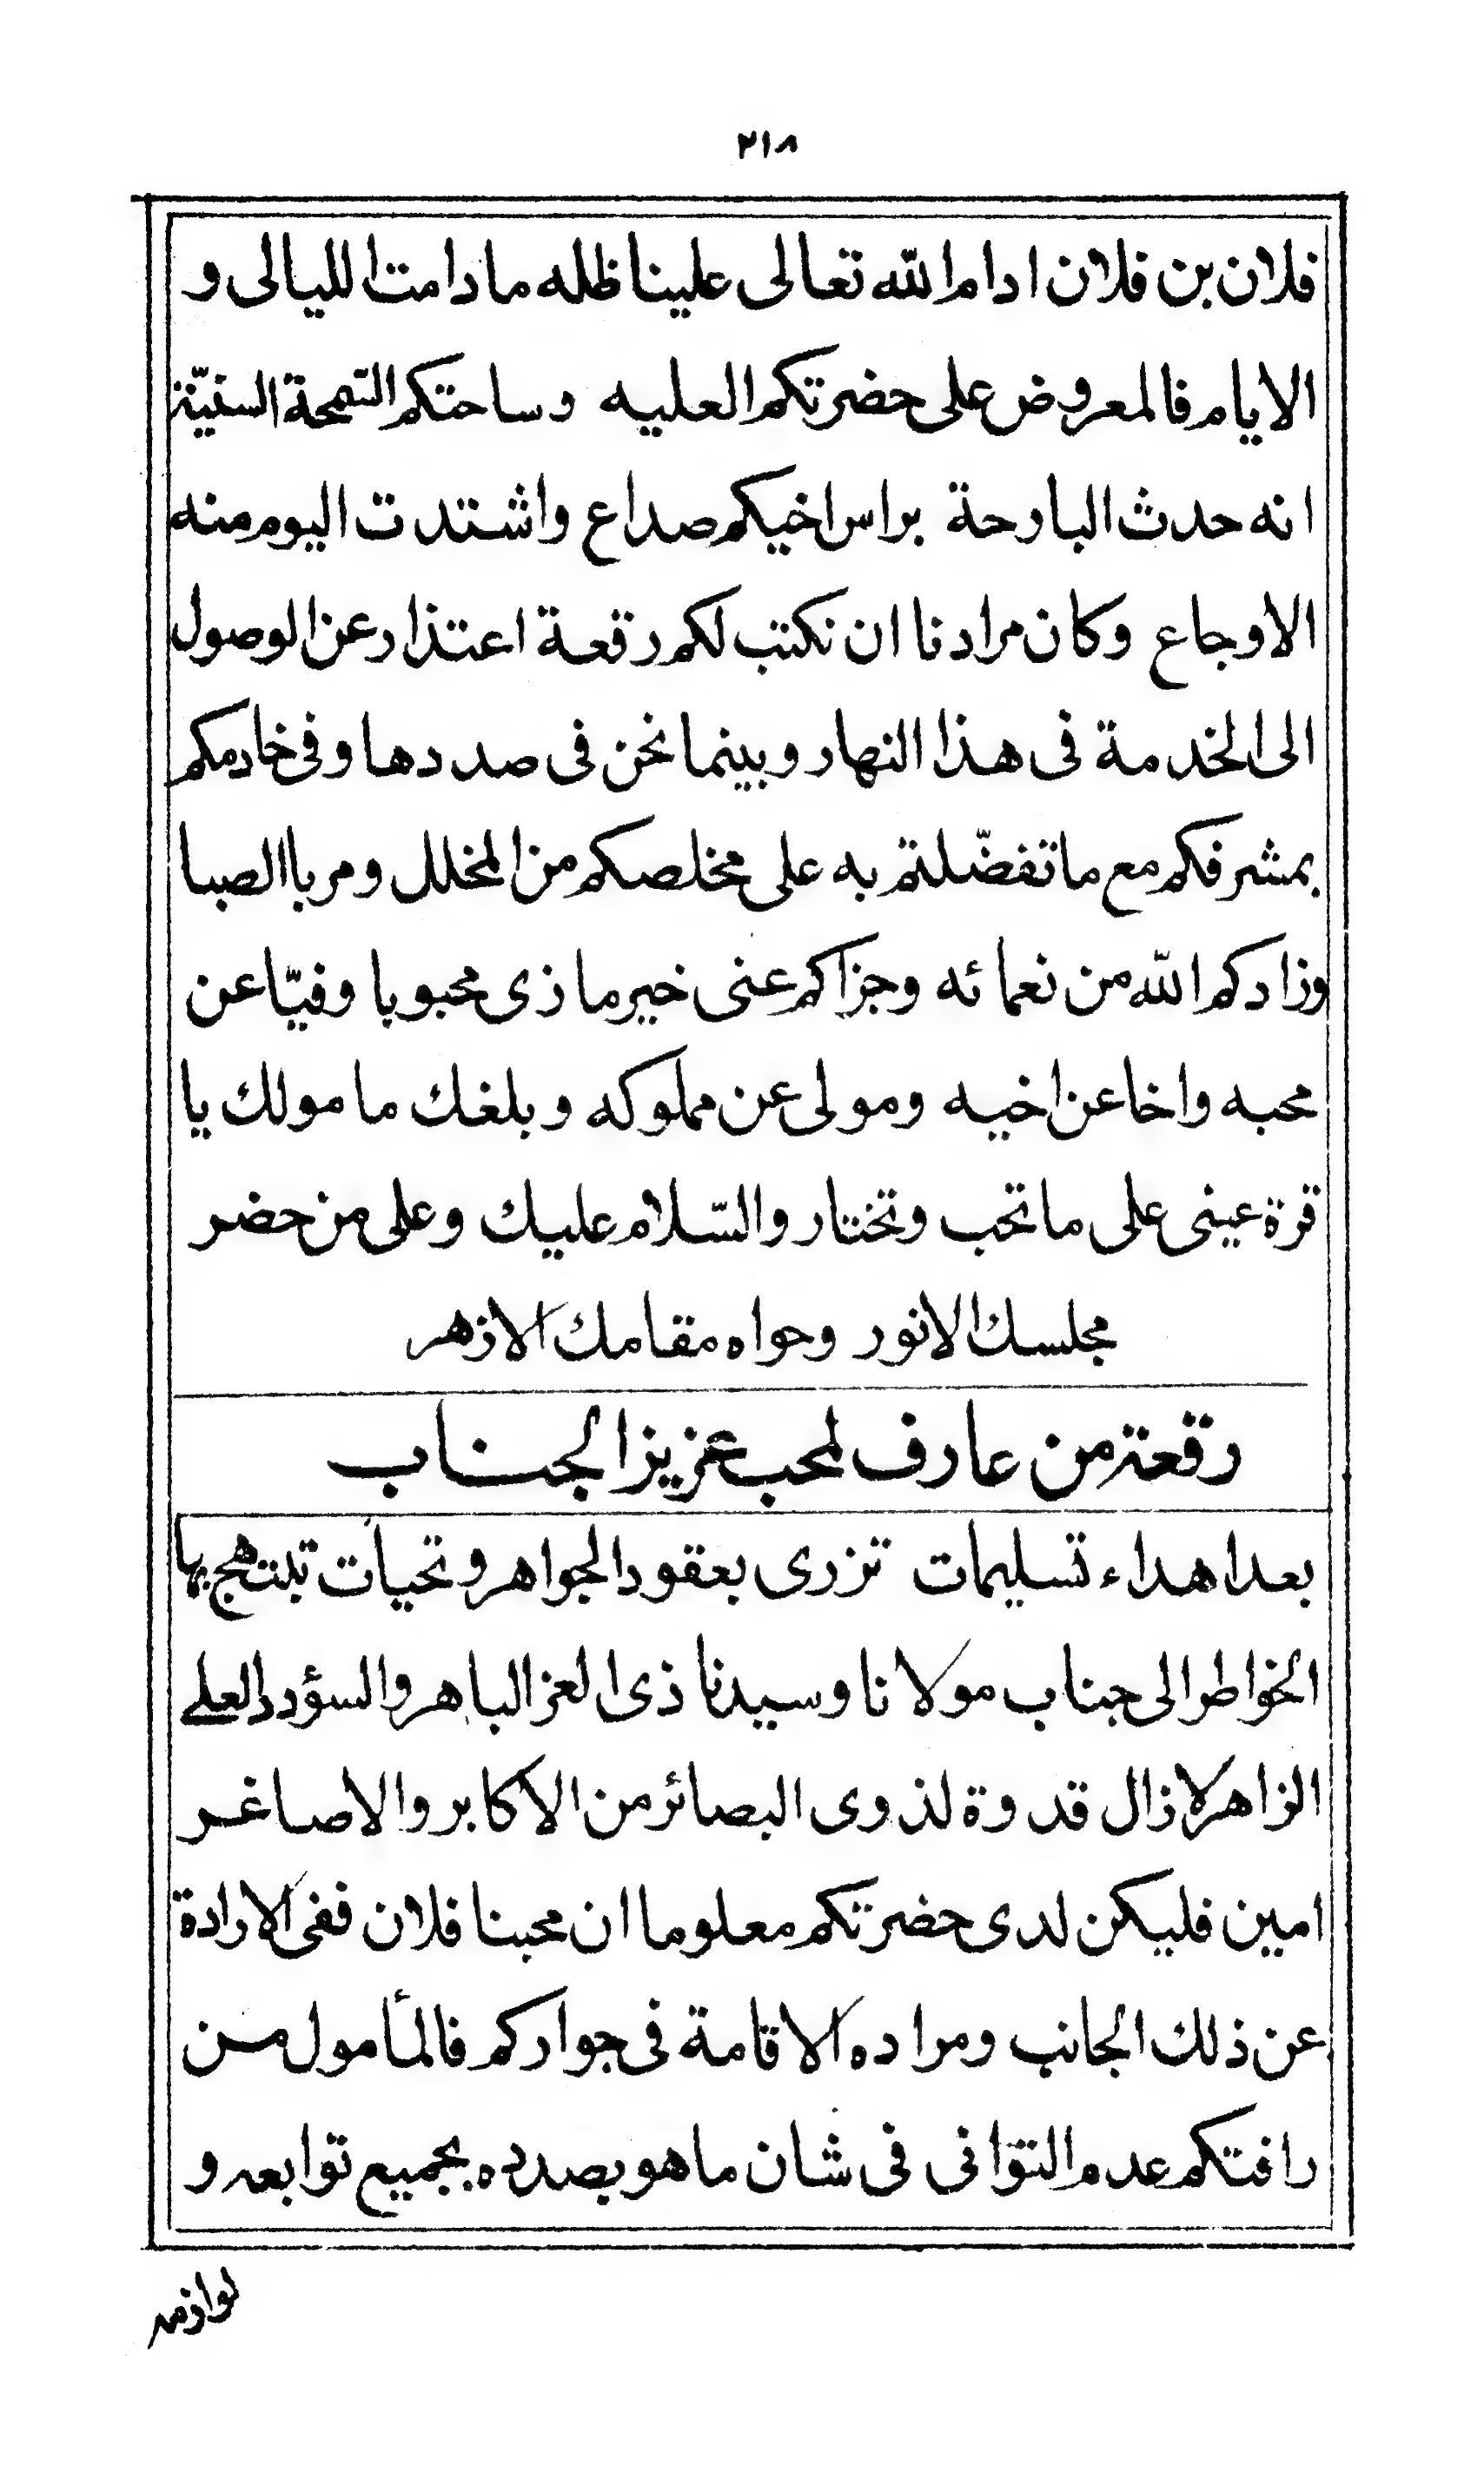 ٢١٨
فلان بن فلان ادام الله تعالى علينا ظله ما دامت الليالى و
الايام فالمعروض على حضرتكم العليه وساحتكم السمحة السنيّة
انه حدث البارحة براس اخيكم صداع واشتدت اليوم منه
الاوجاع وكان مرادنا ان نكتب لكم رقعة اعتذار عن الوصول
الى الخدمة فى هذا النهار وبينما نحن فى صددها وفى خادمكم
بمشرفكم مع ما تفضّلتم به على مخلصكم من المخلل ومربا الصبا
وزادكم الله من نعمائه وجزاكم عنى خير ما زى محبوبا وفيّا عن
محبه واخا عن اخيه ومولى عن مملوكه وبلغك مامولك يا
قرة عينى على ما تحب وتختار والسّلام عليك وعلى من حضر
مجلسك الانور وحواه مقامك الازهر
رقعة من عارف لمحب عزيز الجناب
بعد اهداء تسليمات تزرى بعقود الجواهر وتحيأت تبتهج بها
الخواطر الى جناب مولانا وسيدنا ذى العز الباهر والسؤدد العلے
الزاهر لازال قدوة لذوى البصائر من الاكابر والاصاغر
امين فليكن لدى حضرتكم معلوما ان محبنا فلان ففى الارادة
عن ذلك الجانب ومراده الاقامة فى جواركم فالمأمول من
رافتكم عدم التوانى فى شان ما هو بصدده بجميع توابعه و
لوازمه